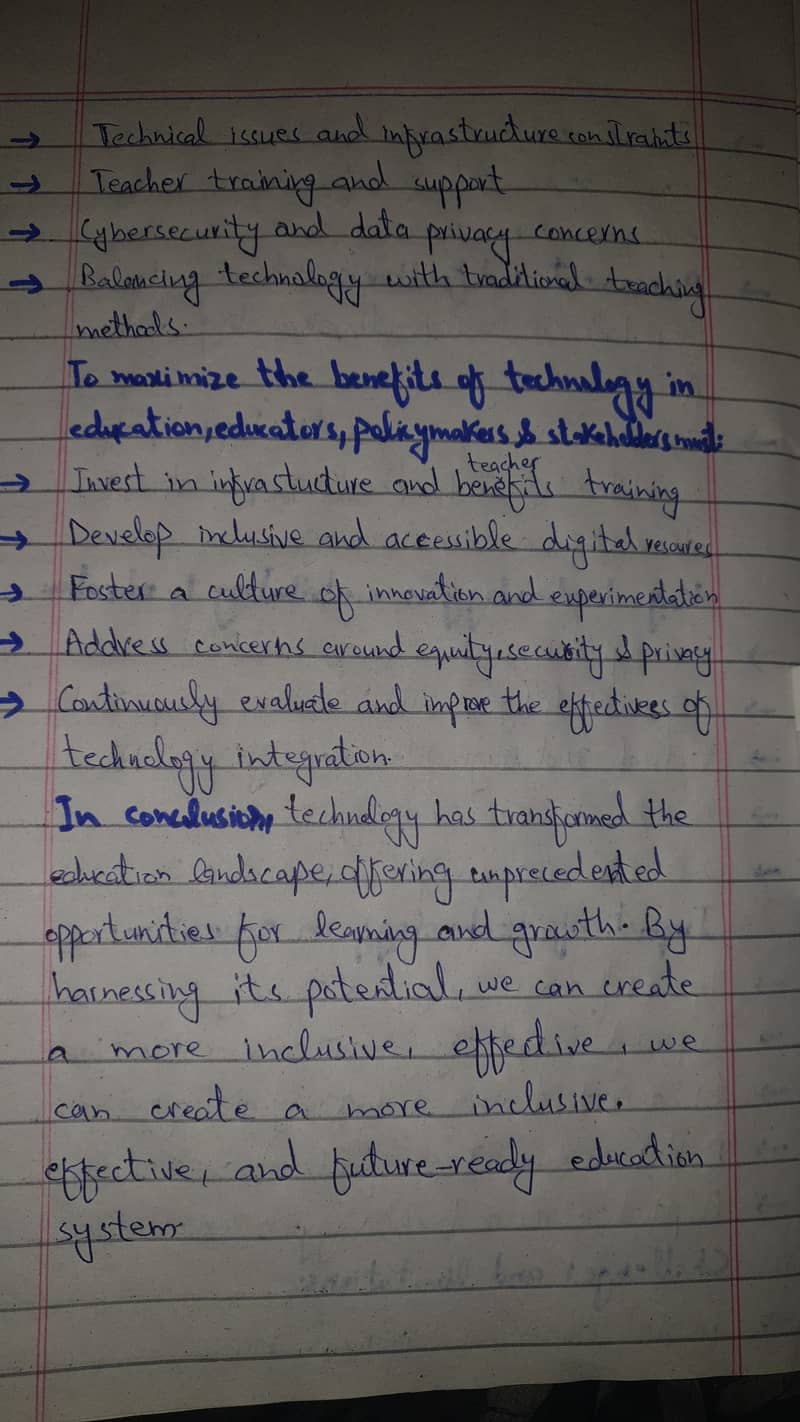 → Technical issues and infrastructure constraints
→ Teacher training and support
→ Cybersecurity and data privacy concerns
→ Balancing technology with traditional teaching
methods.
To maximize the benefits of technology in
education, educators, policymakers & stakeholders must:
teacher
→ Invest in infrastucture and benefits training
→ Develop inclusive and accessible digital resoures
→ Foster a culture of innovation and experimentation
→ Address concerns around equity, security & privacy
→ Continuously evaluate and improve the effectivees of
technology integration.
In conclusion, technology has transformed the
education landscape, offering unprecedented
opportunities for learning and growth. By
harnessing its potential, we can create
a more inclusive, effective, we
can create a more inclusive.
effective, and future-ready education
system